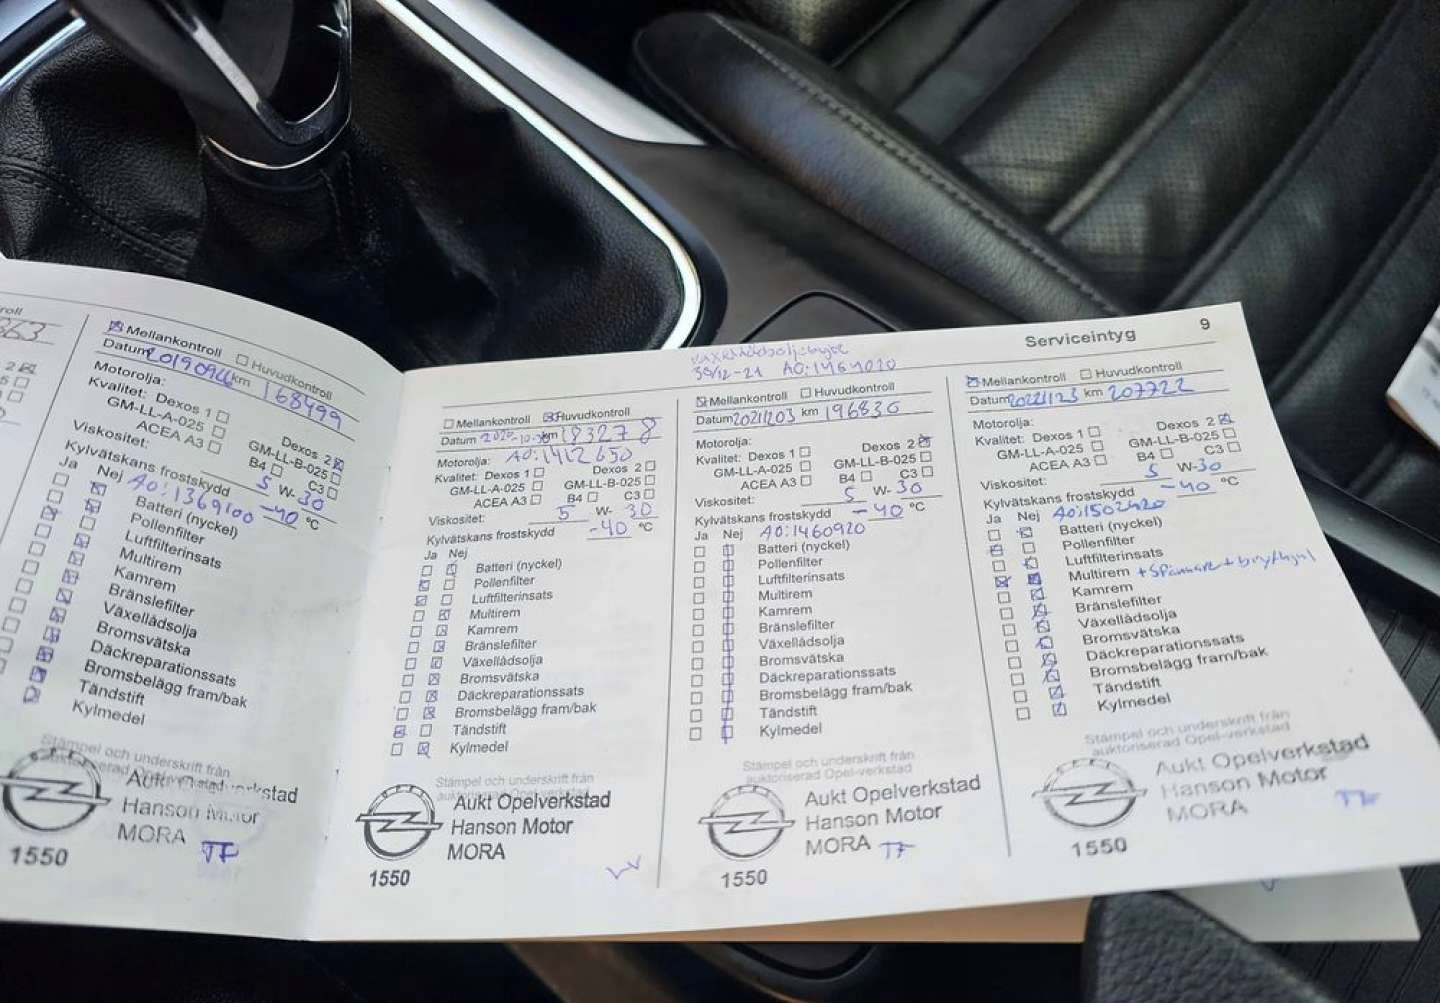 roll
363
Mellankontroll Huvudkontroll
Datum 20190924 km 168499
Motorolja:
Kvalitet: Dexos 1 Dexos 2
GM-LL-A-025 GM-LL-B-025
ACEA A3 B4 C3
Viskositet: 5 W- 30
Kylvätskans frostskydd -40 °C
Ja Nej AO:1369100
Batteri (nyckel)
Pollenfilter
Luftfilterinsats
Multirem
Kamrem
Bränslefilter
Växellådsolja
Bromsvätska
Däckreparationssats
Bromsbelägg fram/bak
Tändstift
Kylmedel
Stämpel och underskrift från
Aukt Opelverkstad
Hanson Motor
MORA TF
1550
Serviceintyg 9
30/12-21 AO:1461020
Mellankontroll Huvudkontroll
Datum km 183278
Motorolja: AO:1412650
Kvalitet: Dexos 1 Dexos 2
GM-LL-A-025 GM-LL-B-025
ACEA A3 B4 C3
Viskositet: 5 W- 30
Kylvätskans frostskydd -40 °C
Ja Nej
Batteri (nyckel)
Pollenfilter
Luftfilterinsats
Multirem
Kamrem
Bränslefilter
Växellådsolja
Bromsvätska
Däckreparationssats
Bromsbelägg fram/bak
Tändstift
Kylmedel
Stämpel och underskrift från
Aukt Opelverkstad
Hanson Motor
MORA
1550
Mellankontroll Huvudkontroll
Datum 20211203 km 196830
Motorolja:
Kvalitet: Dexos 1 Dexos 2
GM-LL-A-025 GM-LL-B-025
ACEA A3 B4 C3
Viskositet: 5 W- 30
Kylvätskans frostskydd -40 °C
Ja Nej AO:1460920
Batteri (nyckel)
Pollenfilter
Luftfilterinsats
Multirem
Kamrem
Bränslefilter
Växellådsolja
Bromsvätska
Däckreparationssats
Bromsbelägg fram/bak
Tändstift
Kylmedel
Stämpel och underskrift från
auktoriserad Opel-verkstad
Aukt Opelverkstad
Hanson Motor
MORA TF
1550
Mellankontroll Huvudkontroll
Datum 20221123 km 207722
Motorolja:
Kvalitet: Dexos 1 Dexos 2
GM-LL-A-025 GM-LL-B-025
ACEA A3 B4 C3
Viskositet: 5 W-30
Kylvätskans frostskydd -40 °C
Ja Nej AO:1502420
Batteri (nyckel)
Pollenfilter
Luftfilterinsats
Multirem + Spännare + brythjul
Kamrem
Bränslefilter
Växellådsolja
Bromsvätska
Däckreparationssats
Bromsbelägg fram/bak
Tändstift
Kylmedel
Stämpel och underskrift från
auktoriserad Opel-verkstad
Aukt Opelverkstad
Hanson Motor
MORA TF
1550